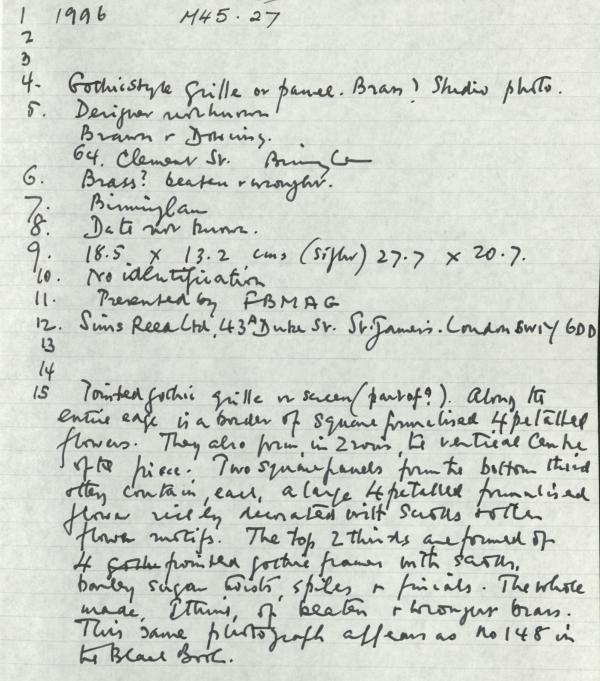 1 1996 M45.27
2
3
4. Gothic style grille or panel. Brass? Studio photo.
5. Designer not known
Brawn & Downing.
64. Clement St. Birmingham
6. Brass? beaten & wrought.
7. Birmingham
8. Date not known.
9. 18.5 x 13.2 cms (Sight) 27.7 x 20.7.
10. No identification
11. Presented by FBMAG
12. Sims Reed Ltd, 43A Duke St. St. James's. London SW1Y 6DD
13
14
15 Pointed gothic grille or screen (part of?). Along the
entire edge is a border of square formalised 4 petalled
flowers. They also form, in 2 rows, the vertical centre
of the piece. Two square panels form the bottom third
& they contain, each, a large 4 petalled formalised
flower richly decorated with scrolls & other
flower motifs. The top 2 thirds are formed of
4 gothic pointed gothic frames with scrolls,
barley sugar twists, spikes & finials. The whole
made, I think, of beaten & wrought brass.
This same photograph appears as no 148 in
the Black Book.